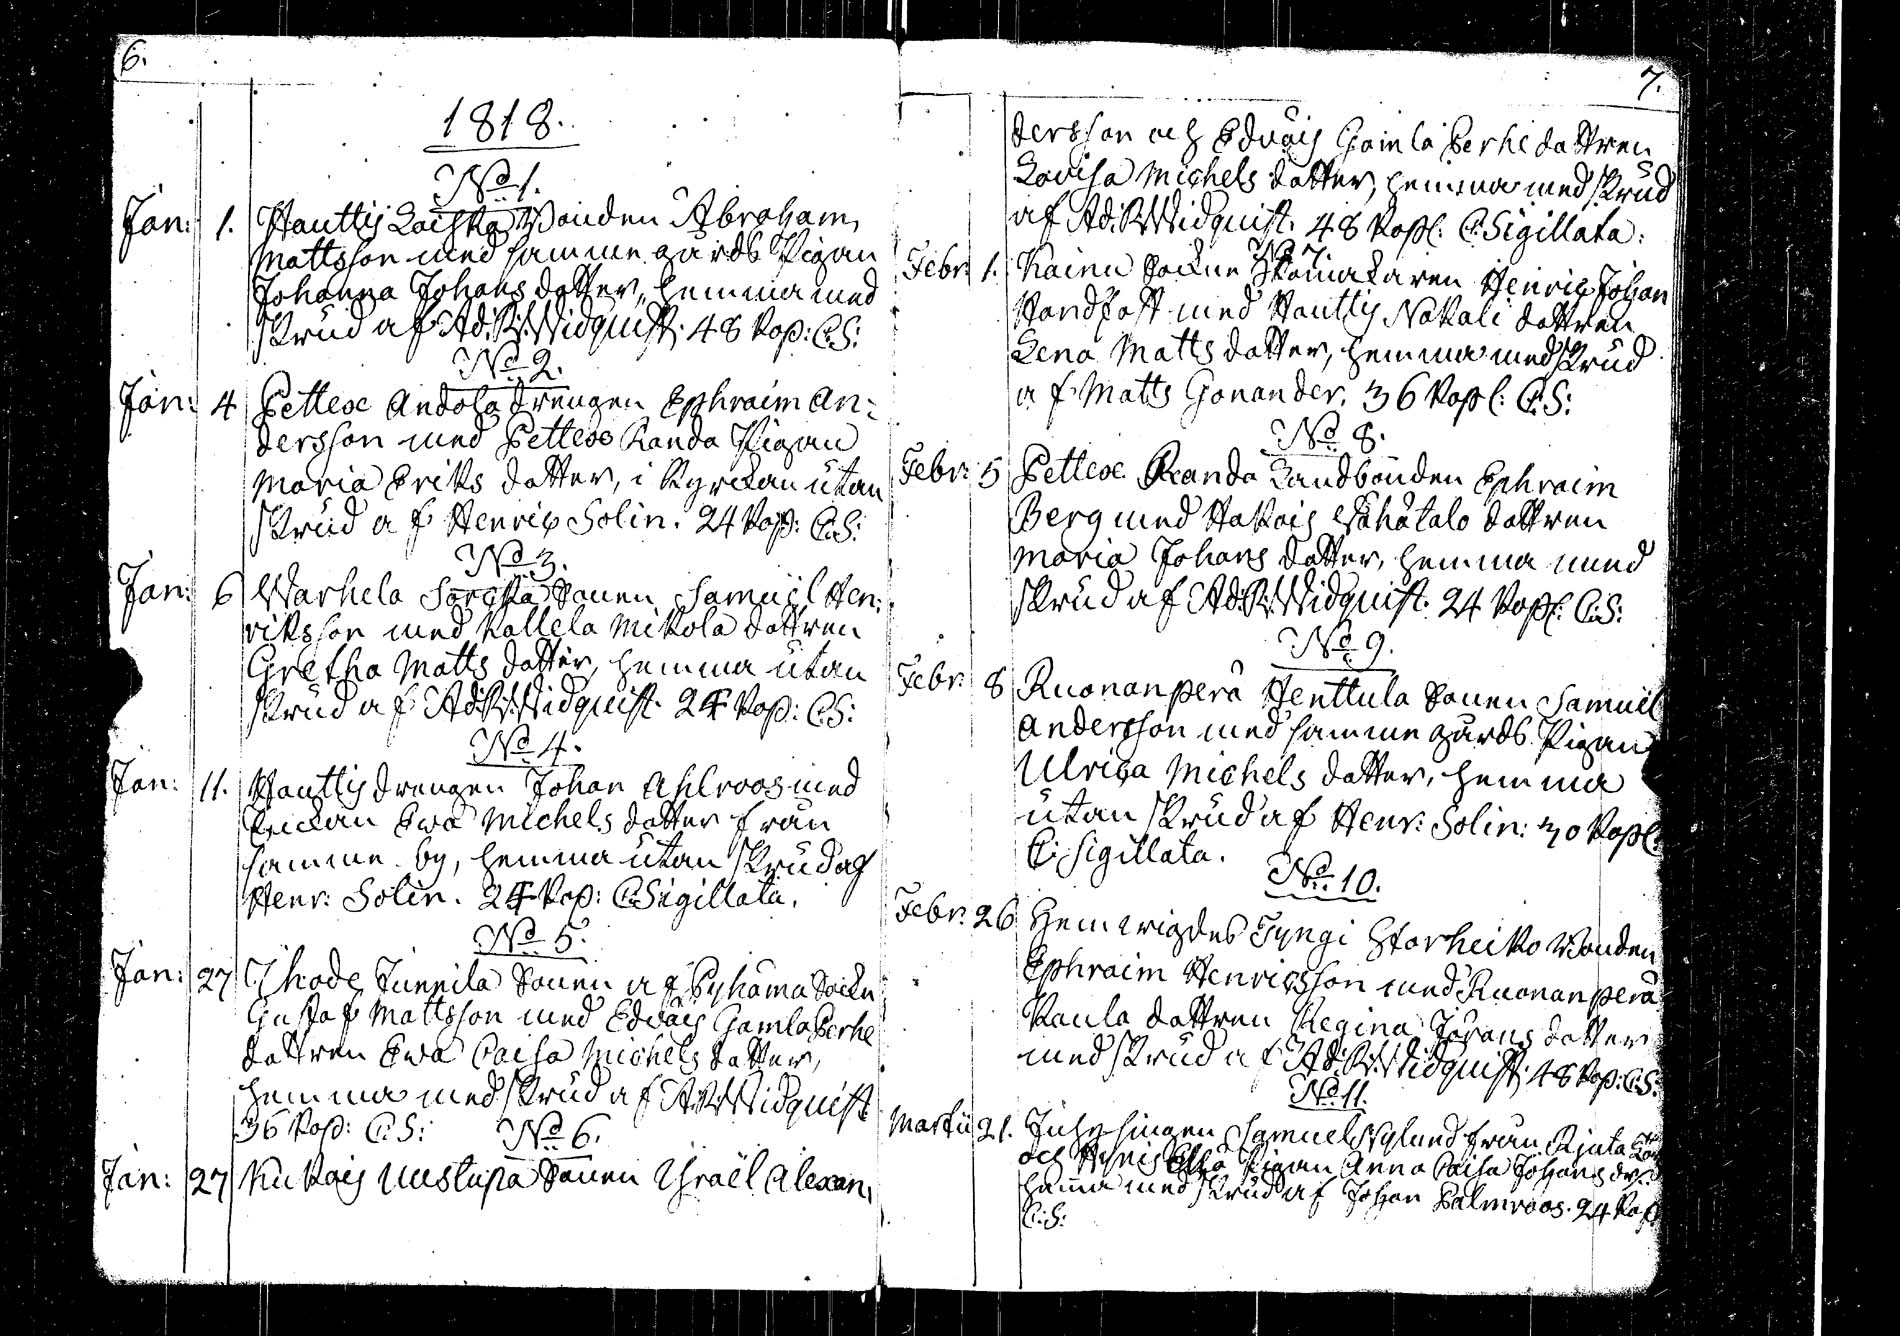 6.
1818.
No 1.
Jan: 1. Hauttis Laiska Bonden Abraham
Mattsson med samme gårds Pigan
Johanna Johans dotter, hemma med
skrud af Ad: R: Widquist. 48 Kop: C.S:
No 2.
Jan: 4 Pettexe Andola drengen Ephraim An-
dersson med Pettexe Randa Pigan
Maria Eriks dotter, i Kyrckan utan
skrud af Henric Solin. 24 Kop: C.S:
No 3.
Jan: 6 Warhela Sonen Samuel Hen-
riksson med Kallela Mikola dottren
Gretha Matts dotter, hemma utan
skrud af Ad: R: Widquist. 24 Kop: C.S:
No 4.
Jan: 11. Hauttis drengen Johan Ahlroos med
Enckan Ewa Michels dotter från
samme by, hemma utan skrud af
Henr: Solin. 24 Kop: C. Sigillata.
No 5.
Jan: 27 Ihode Junnila Sonen af Pyhäma Sockn
Gustaf Mattsson med Edväis Gamla Perhe
dottren Ewa Caisa Michels dotter,
hemma med skrud af A. R. Widquist
36 Kop: C.S: No 6.
Jan: 27 Kukais Uustupa Sonen Israël Alexan-
7.
dersson och Edväis Gamla Perhe dottren
Lovisa Michels dotter, hemma med skrud
af Ad: R: Widquist. 48 Kop: C. Sigillata.
No 7.
Febr: 1. Kainu Sockne Skomakaren Henric Johan
Handfast med Hauttis Nokali dottren
Lena Matts dotter, hemma med skrud
af Matts Gonander. 36 Kop: C.S:
No 8.
Febr: 5 Pettexe Randa Landbonden Ephraim
Berg med Hakois Wähätalo dottren
Maria Johans dotter, hemma med
skrud af Ad: R: Widquist. 24 Kop: C.S:
No 9.
Febr: 8 Ruonanperä Henttula Sonen Samuel
Andersson med samme gårds Pigan
Ulrica Michels dotter, hemma
utan skrud af Henr: Solin: 30 Kop:
C: Sigillata.
No 10.
Febr: 26 Hemwigdes Tyngi Storheiko Bonden
Ephraim Henricsson med Ruonanperä
Kaula dottren Regina Jörans dotter
med skrud af Ad: R: Widquist. 48 Kop: C.S:
No 11.
Martii 21. Inhysingen Samuel Nylund från
och Pigan Anna Caisa Johans dr:
hemma med skrud af Johan Palmroos. 24 Kop
C.S: